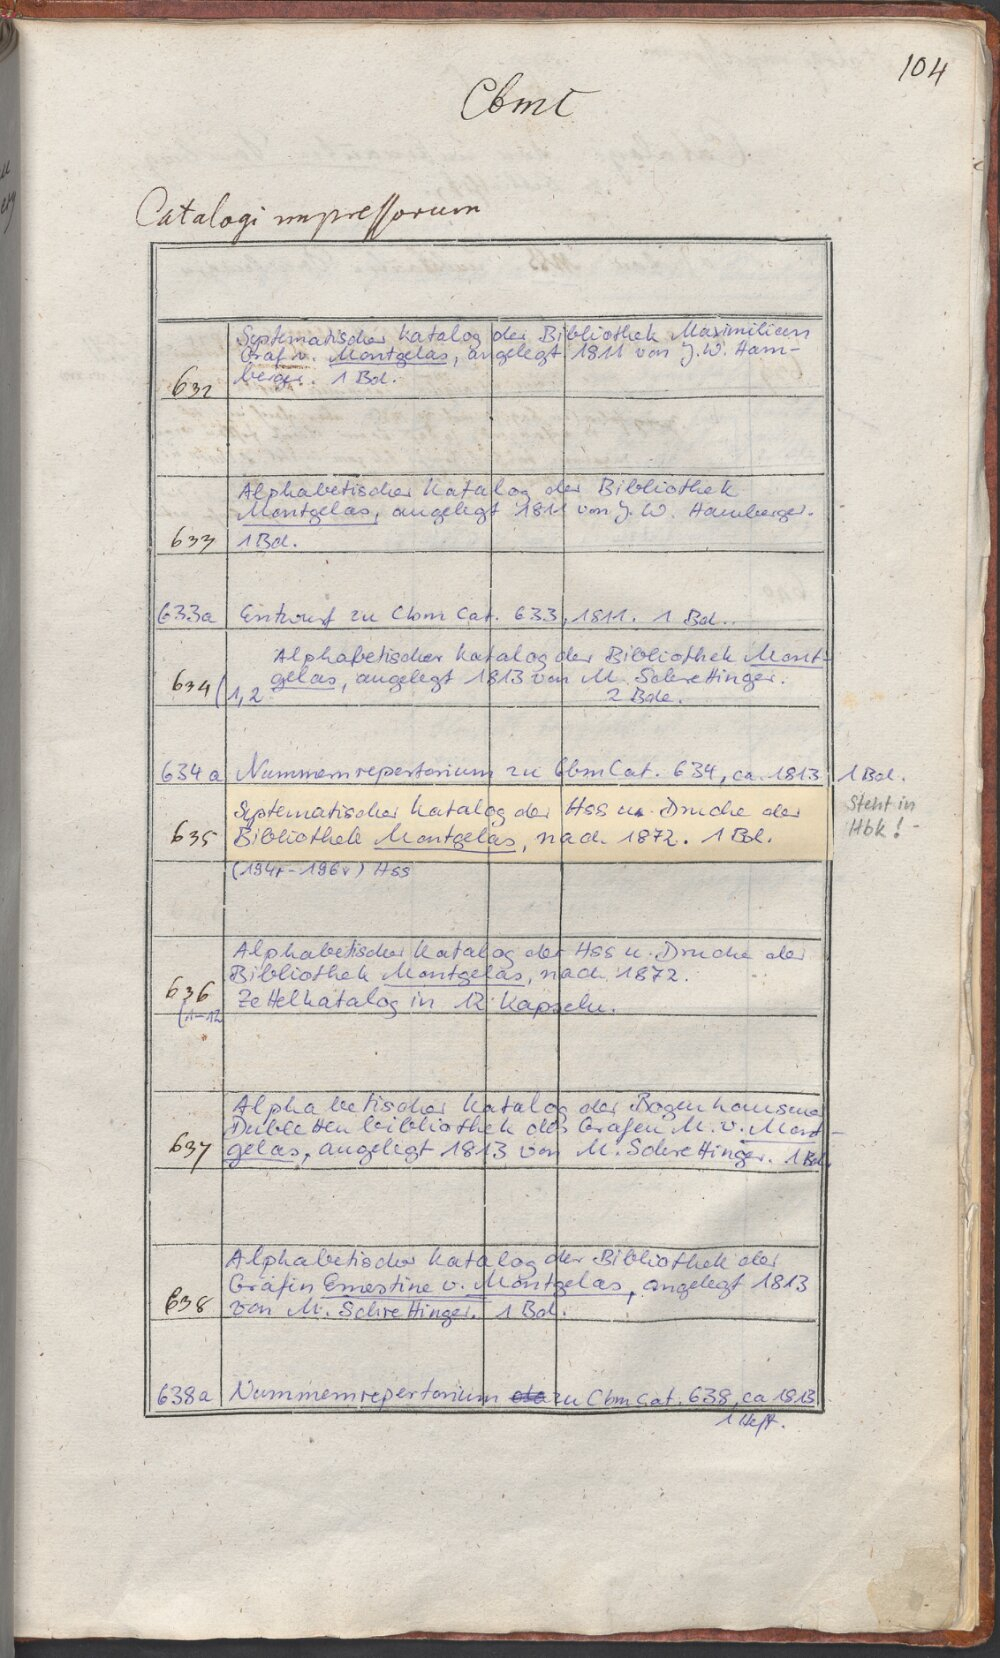 104
Cbmc
Catalogi impressorum
Systematischer Katalog der Bibliothek Maximilian
Graf v. Montgelas, angelegt 1811 von J. W. Ham-
632 berger. 1 Bd.
Alphabetischer Katalog der Bibliothek
Montgelas, angelegt 1811 von J. W. Hamberger.
633 1 Bd.
633a Entwurf zu Cbm Cat. 633, 1811. 1 Bd.
Alphabetischer Katalog der Bibliothek Mont-
634 gelas, angelegt 1813 von M. Schrettinger.
(1,2 2 Bde.
634a Nummernrepertorium zu Cbm Cat. 634, ca. 1813 1 Bd.
Systematischer Katalog der Hss u. Drucke der
635 Bibliothek Montgelas, nach 1872. 1 Bd.
Steht in
Hbk!
(194r-196v) Hss
Alphabetischer Katalog der Hss u. Drucke der
Bibliothek Montgelas, nach 1872.
636 Zettelkatalog in 12 Kapseln.
(1-12
Alphabetischer Katalog der Bogenhausener
Dublettenbibliothek des Grafen M. v. Mont-
637 gelas, angelegt 1813 von M. Schrettinger. 1 Bd.
Alphabetischer Katalog der Bibliothek der
Gräfin Ernestine v. Montgelas, angelegt 1813
638 von M. Schrettinger. 1 Bd.
638a Nummernrepertorium zu Cbm Cat. 638, ca 1813
1 Heft.